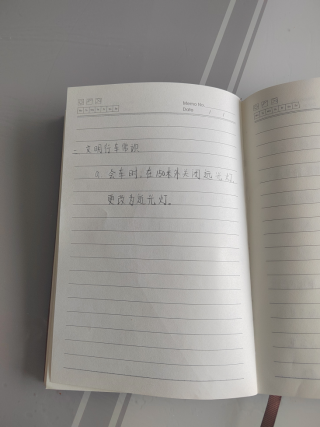 Memo No.
Date / /
文明行车常识
① 会车时,在150米外关闭远光灯,
更改为近光灯。